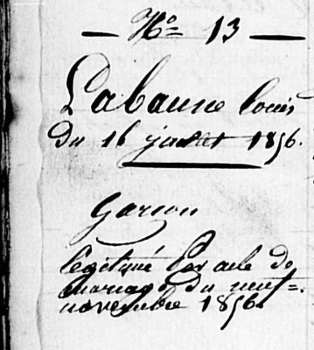 — No 13 —
Labausse Louis
du 16 juillet 1856.
Garson
légitimé par acte de
mariage du neuf
novembre 1856.